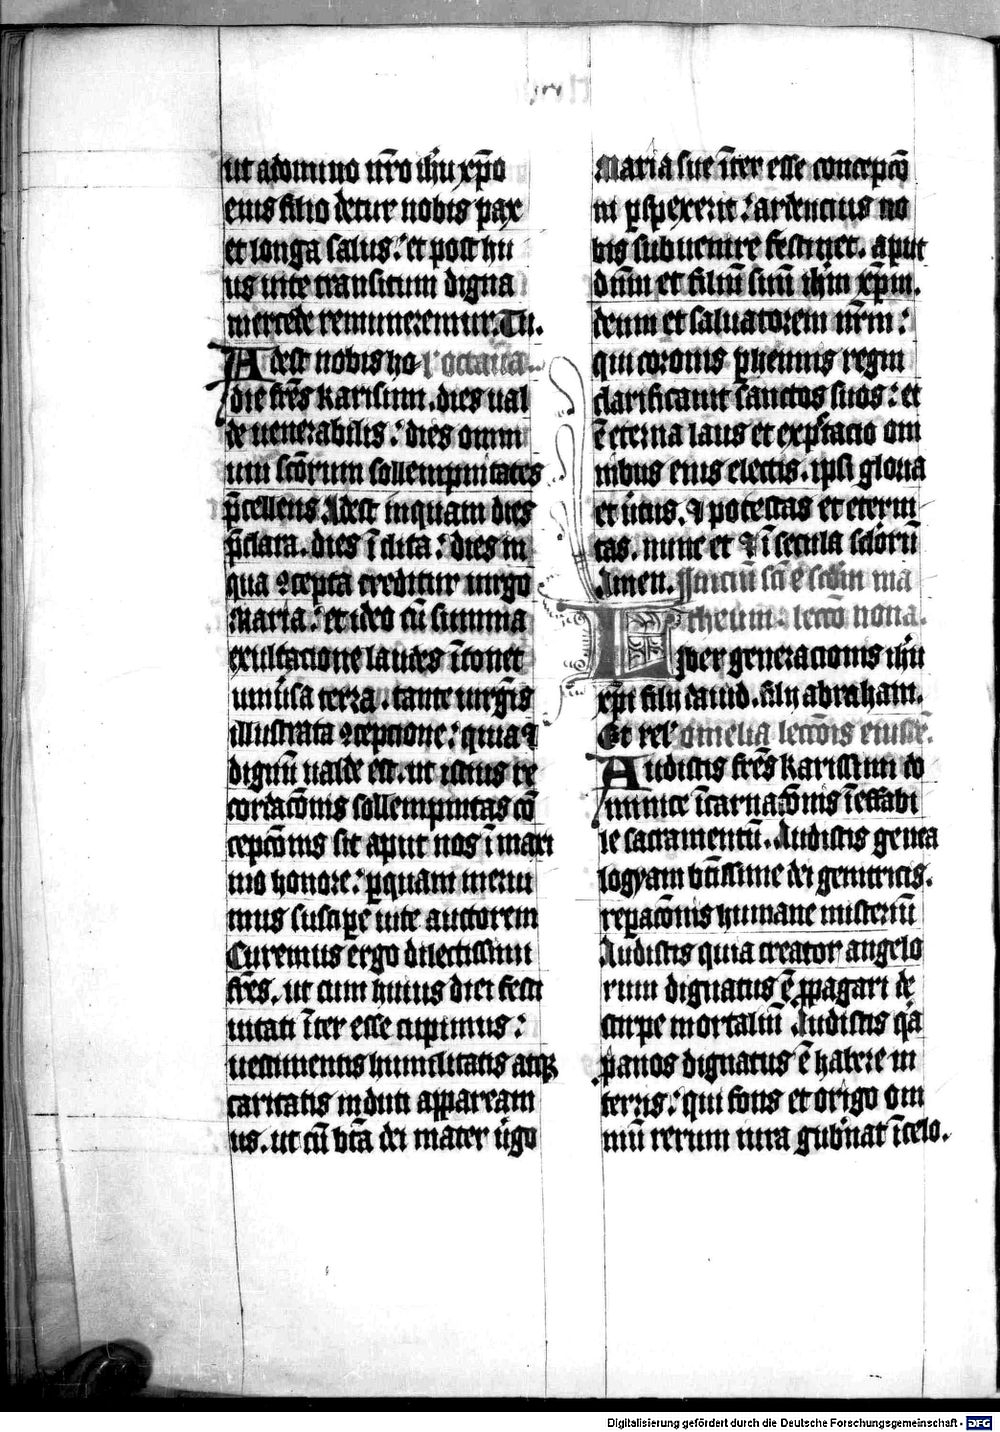 ut a domino nr̄o ih̄u xp̄o
eius filio detur nobis pax
et longa salus: et post hu
us uite transitum digna
mercede remuneremur. Tu.
Adest nobis ho- l' octaua.
die fr̄es karissimi. dies ual
de uenerabilis: dies omni
um sc̄orum sollempnitates
p̄cellens. Adest inquam dies
p̄clara. dies īclita: dies in
qua ꝯcepta creditur uirgo
Maria: et ideo cū summa
exultacione laudes ītonet
uniūsa terra. tante uirḡis
illustrata ꝯcepcione: quia ⁊
dignū ualde est. ut istius re
cordac̄onis sollempnitas cō
cepc̄onis sit aput nos ī maxi
mo honore: p̱quam meru
imus suscipe uite auctorem
Curemus ergo dilectissimi
fr̄es. ut cum huius diei festi
uitati īter esse cupimus:
uestimentis humilitatis atqꝫ
caritatis induti appaream
us. ut cū bt̄a dei mater ūgo
Maria sue īter esse concepc̄o
ni p̱spexerit: ardencius no
bis subuenire festinet. aput
dn̄m et filiū suū ih̄m xp̄m.
deum et saluatorem nr̄m:
qui coronis p̱hennis regni
clarificauit sanctos suos: et
ē eterna laus et exp̱ctacio om
nibus eius electis. ipsi gloria
et ūtus. ⁊ potestas et eterni
tas. nunc et ⁊ ī secula sclorū
Amen. Inicīū sc̄i ewa sc̄dm ma
theum. lecc̄o nona.
Liber generacionis ih̄u
xp̄i filij dauid. filij abraham.
Et rel' omelia lecc̄onis eiusdē.
Audistis fr̄es karissimi do
minice īcarnac̄onis īeffabi
le sacramentū. Audistis genea
logyam bt̄issime dei genitricis.
repac̄onis humane misteriū
Audistis quia creator angelo
rum dignatus ē p̱pagari de
stirpe mortaliū Audistis qa
panos dignatus ē habere in
terris: qui fons et origo om
niū rerum iura gub̄nat ī celo.
Digitalisierung gefördert durch die Deutsche Forschungsgemeinschaft - DFG